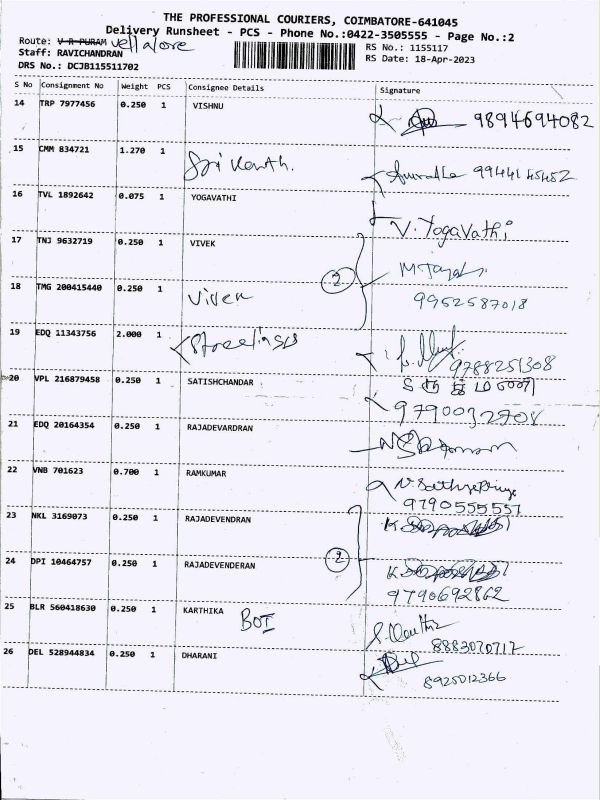 THE PROFESSIONAL COURIERS, COIMBATORE-641045
Delivery Runsheet - PCS - Phone No.:0422-3505555 - Page No.:2
Route: V R PURAM Vellalore
RS No.: 1155117
Staff: RAVICHANDRAN
RS Date: 18-Apr-2023
DRS No.: DCJB115511702
S No Consignment No Weight PCS Consignee Details Signature
14 TRP 7977456 0.250 1 VISHNU
9894694082
15 CMM 834721 1.270 1
Srikanth. Anuradha 9944145452
16 TVL 1892642 0.075 1 YOGAVATHI
V. Yogavathi
17 TNJ 9632719 0.250 1 VIVEK
2
18 TMG 200415440 0.250 1
Vivek 9952587018
19 EDQ 11343756 2.000 1
9788251308
20 VPL 216879458 0.250 1 SATISHCHANDAR
9790032708
21 EDQ 20164354 0.250 1 RAJADEVARDRAN
22 VNB 701623 0.700 1 RAMKUMAR
N. Sathyapriya
9790555557
23 NKL 3169073 0.250 1 RAJADEVENDRAN
2
24 DPI 10464757 0.250 1 RAJADEVENDERAN
9790692862
25 BLR 560418630 0.250 1 KARTHIKA
BOI
8883070717
26 DEL 528944834 0.250 1 DHARANI
8925012366